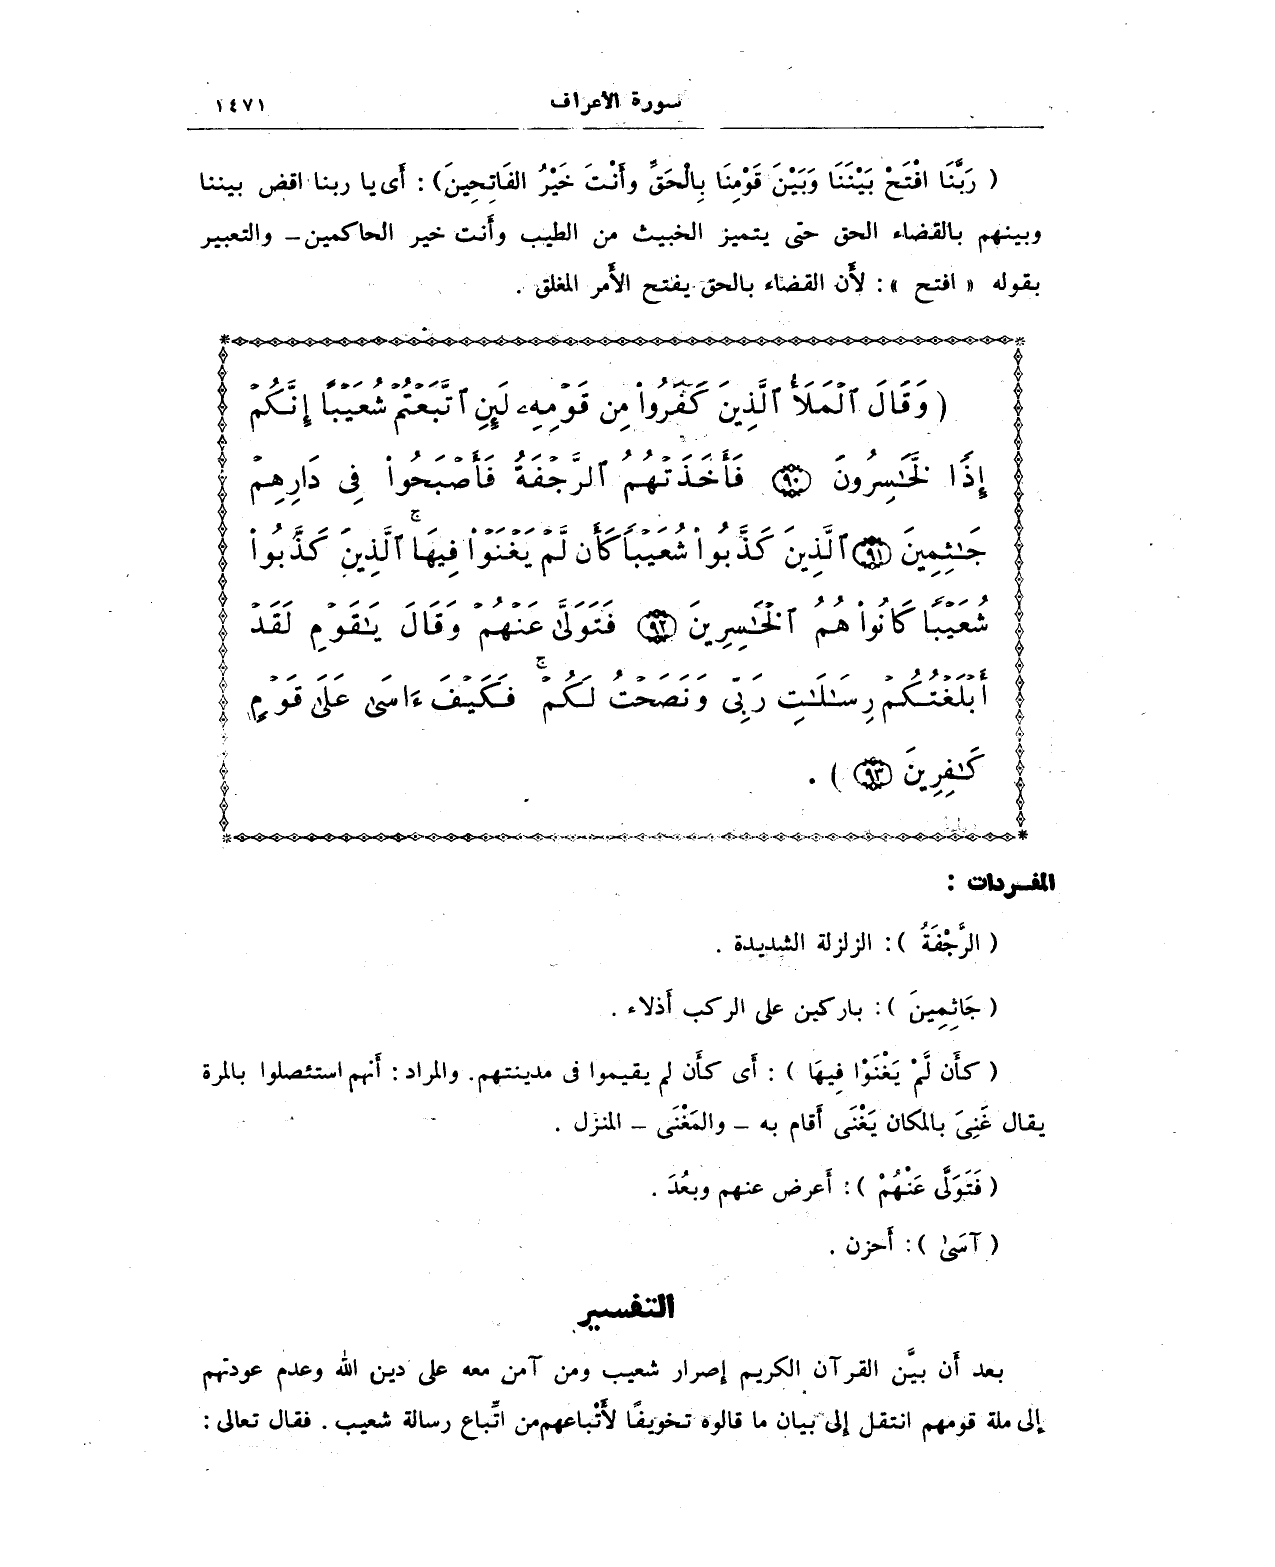 سورة الأعراف ١٤٧١
( رَبَّنَا افْتَحْ بَيْنَنَا وَبَيْنَ قَوْمِنَا بِالْحَقِّ وأَنْتَ خَيْرُ الفَاتِحِينَ) : أَى يا ربنا اقض بيننا
وبينهم بالقضاء الحق حتى يتميز الخبيث من الطيب وأَنت خير الحاكمين - والتعبير
بقوله « افتح » : لأَن القضاء بالحق يفتح الأَمر المغلق .
( وَقَالَ ٱلْمَلَأُ ٱلَّذِينَ كَفَرُوا۟ مِن قَوْمِهِۦ لَئِنِ ٱتَّبَعْتُمْ شُعَيْبًا إِنَّكُمْ
إِذًا لَّخَـٰسِرُونَ ۝٩٠ فَأَخَذَتْهُمُ ٱلرَّجْفَةُ فَأَصْبَحُوا۟ فِى دَارِهِمْ
جَـٰثِمِينَ ۝٩١ ٱلَّذِينَ كَذَّبُوا۟ شُعَيْبًا كَأَن لَّمْ يَغْنَوْا۟ فِيهَا ۚ ٱلَّذِينَ كَذَّبُوا۟
شُعَيْبًا كَانُوا۟ هُمُ ٱلْخَـٰسِرِينَ ۝٩٢ فَتَوَلَّىٰ عَنْهُمْ وَقَالَ يَـٰقَوْمِ لَقَدْ
أَبْلَغْتُكُمْ رِسَـٰلَـٰتِ رَبِّى وَنَصَحْتُ لَكُمْ ۖ فَكَيْفَ ءَاسَىٰ عَلَىٰ قَوْمٍ
كَـٰفِرِينَ ۝٩٣ ) .
المفردات :
( الرَّجْفَةُ ) : الزلزلة الشديدة .
( جَاثِمِينَ ) : باركين على الركب أَذلاء .
( كأَن لَّمْ يَغْنَوْا فِيهَا ) : أَى كأَن لم يقيموا فى مدينتهم. والمراد : أَنهم استئصلوا بالمرة
يقال غَنِىَ بالمكان يَغْنَى أَقام به - والمَغْنَى - المنزل .
( فَتَوَلَّى عَنْهُمْ ) : أَعرض عنهم وبعُدَ .
( آسَىٰ ) : أَحزن .
التفسير
بعد أَن بيَّن القرآن الكريم إِصرار شعيب ومن آمن معه على دين الله وعدم عودتهم
إِلى ملة قومهم انتقل إِلى بيان ما قالوه تخويفًا لأَتْباعهم من اتِّباع رسالة شعيب . فقال تعالى :